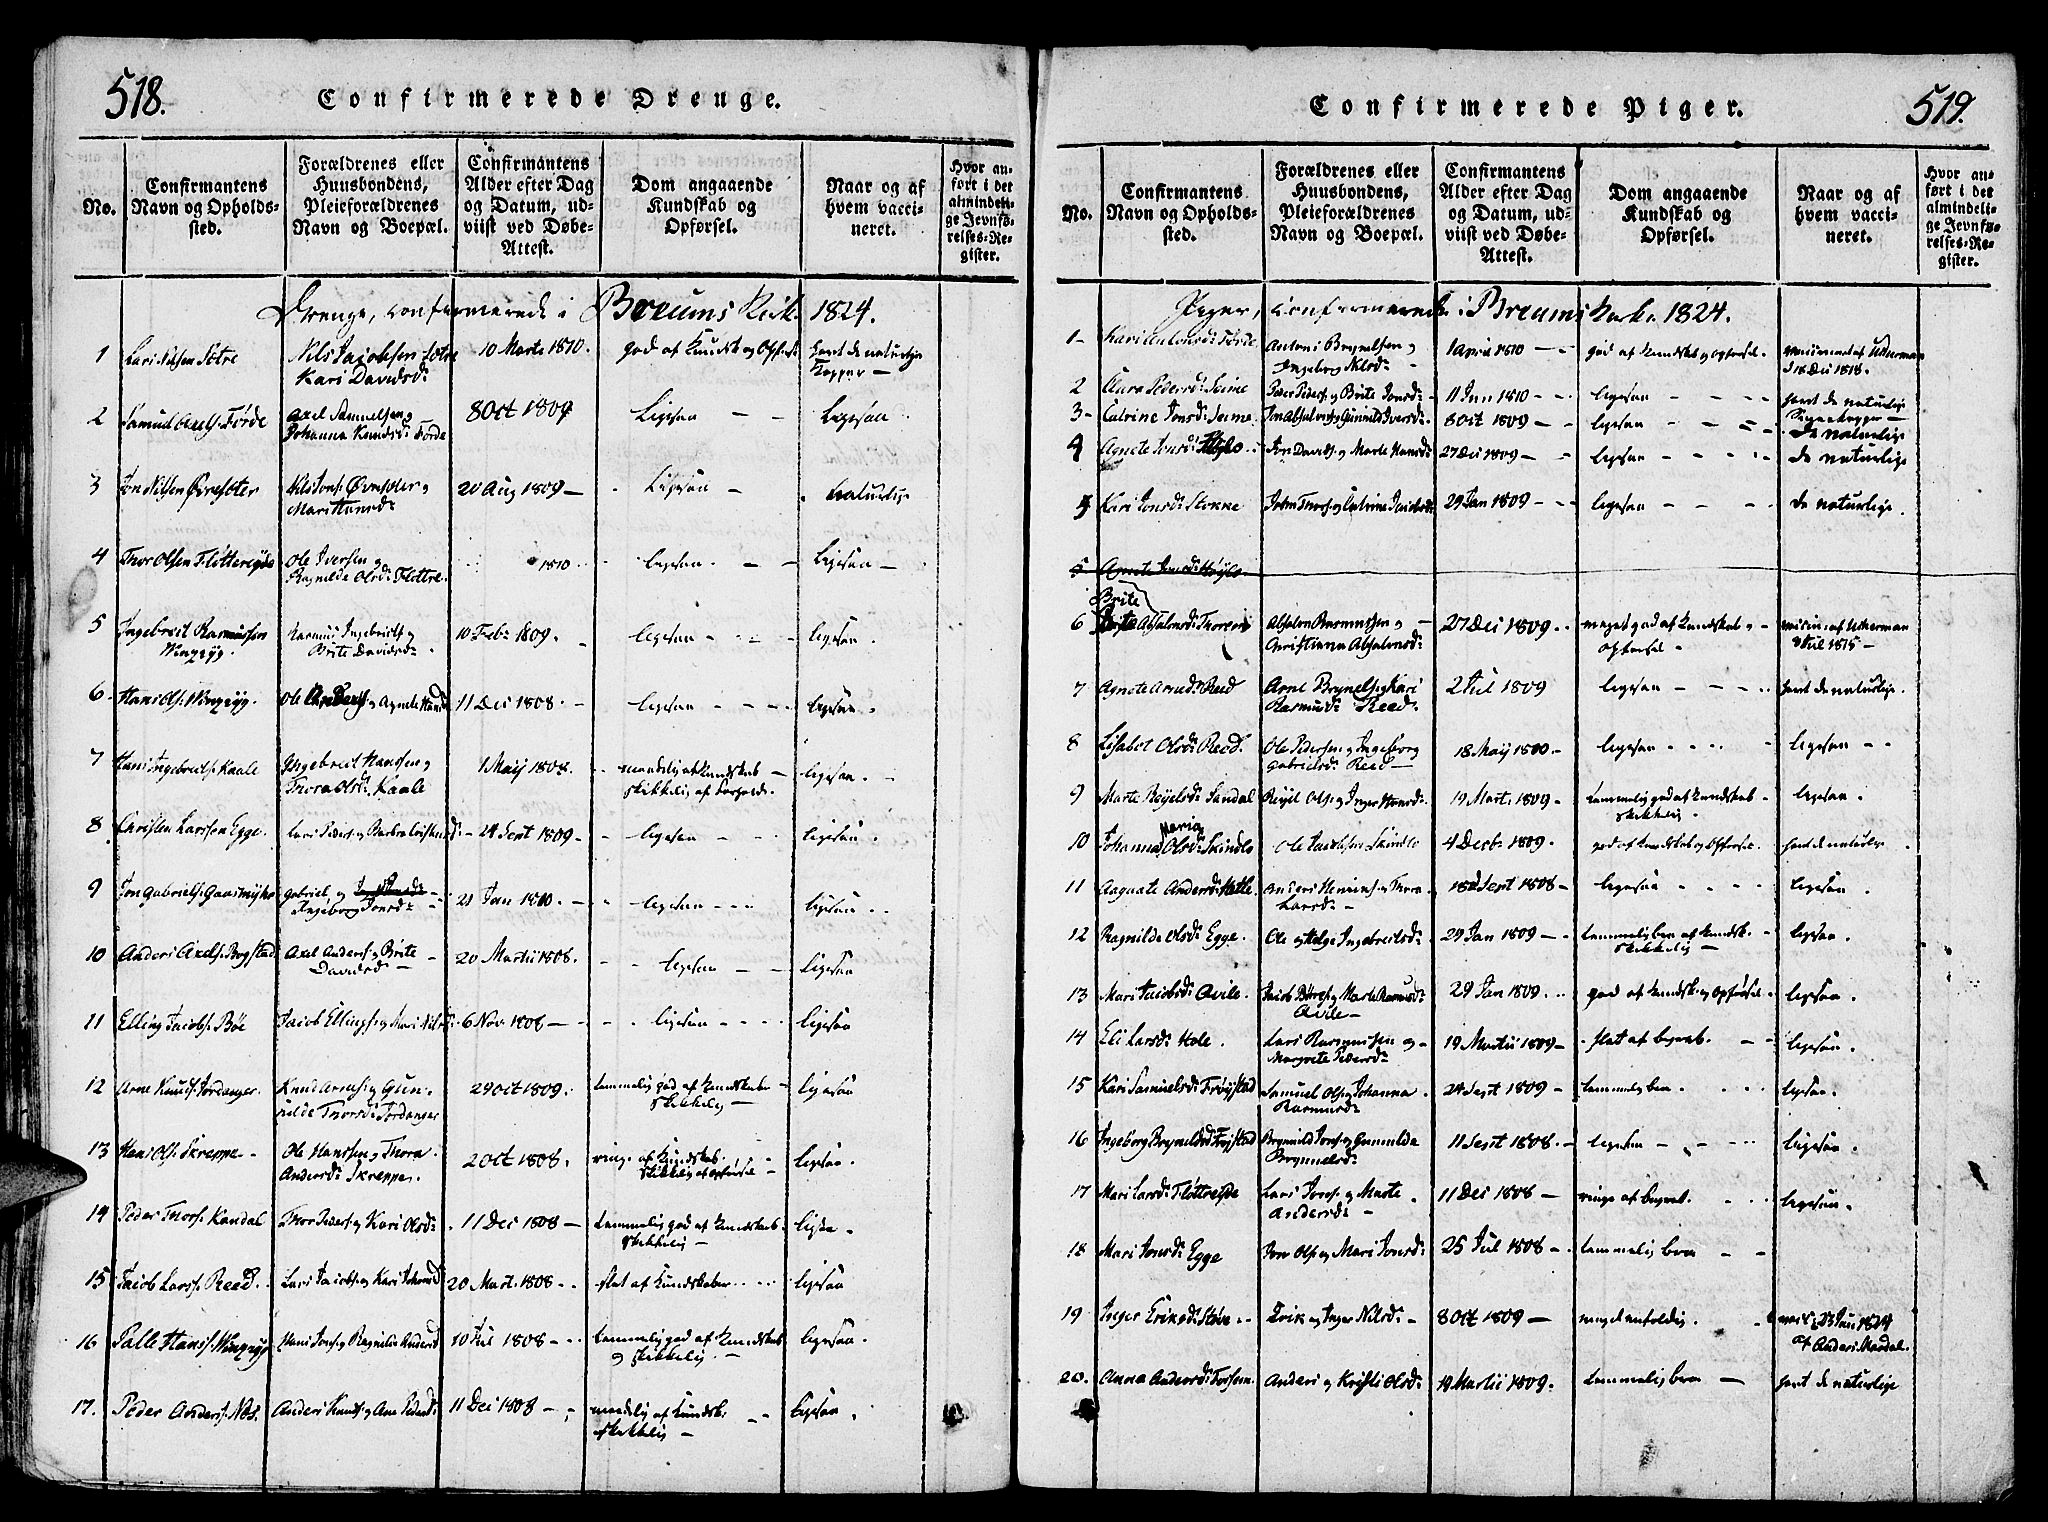 518.
Confirmerede Drenge.
No.
Confirmantens Navn og Opholdssted.
Forældrenes eller Huusbondens, Pleieforældrenes Navn og Boepæl.
Confirmantens Alder efter Dag og Datum, udviist ved Døbe-Attest.
Dom angaaende Kundskab og Opførsel.
Naar og af hvem vaccineret.
Hvor anført i det almindelige Jevnførelses-Register.
Drenge, confermerede i Breums Kirke 1824.
1 Lars Nilsen Sotre Nils Jacobsen Sotre 10 Marti 1810. god af Kundsk og Opførs havt de naturlige
Kari Davidsd: Kopper —
2 Samuel Axels. Førde Axel Samuelsen og 8 Oct 1809 Ligesaa — — Ligesaa
Johanna Knudsd: Førde
3 Jon Nilsen Øvresoter Nils Jons. Øvresoter og 20 Aug 1809 — Ligesaa — naturlige
Mari Hansd:
4 Thor Olsen Fløttereyde Ole Iversen og 1810 ligesaa — — Ligesaa —
Ragnilde Olsd: Flottre.
5 Ingebreit Rasmussen Rasmus Ingebreits og 10 Feb: 1809. ligesaa ligesaa
Myngøyg. Brite Davidsd:
6. Hans Ols. Ole Anders. og Agnete Hansd 11 Dec 1808. ligesaa ligesaa
7 Hans Ingebreits. Kaale Ingebreit Hansen og 1 Maij 1808. maadelig af Kundskab — ligesaa
Thora Olsd: Kaale skikkelig af Forhold.
8 Christen Larssen Egge. Lars Peders og Barbra Cristensd: 24 Sept 1809 — ligesaa ligesaa
9 Jon Gabriels. Gaasmyhr Gabriel og 21 Jan 1810. ligesaa ligesaa
Ingeborg Jonsd:
10 Anders Axels. Brygstad Axel Anders. og Brite 20 Martii 1808. ligesaa — — Ligesaa
Davidsd —
11 Elling Jacobs. Böe Jacob Ellings og Mari Nilsd: 6 Nov 1808 — ligesaa ligesaa
12 Arne Knuds. Jordanger. Knud Arnes og Gun- 29 Oct 1809. temmelig god af Kundskaber — ligesaa
nilde Thorsd: Jordanger skikkelig —
13 Hans Ols. Skreppe — Ole Hanssen og Thora 2 Oct 1808. ringe af Kundskab. ligesaa
Andersd: Skreppe. skikkelig af Opførsel —
14 Peder Thors. Kandal Thor Peders og Kari Olsd: 11 Dec 1808 — temmelig god af Kundskab ligesaa
skikkelig —
15 Jacob Larss. Reed. Lars Jacobs og Kari Johansd 20 Mart. 1808. slet af Kundskaber ligesaa
16. Palle Hanss. Hans Jons og Ragnilde Andersd 10 Jul 1808. temmelig god af Kundskab ligesaa
og skikkelig. —
17. Peder Anders. Nøs. Anders Knuds og Ane Pedersd: 11 Dec 1808 — maadelig af Kundsk. ligesaa
skikkelig —
Confirmerede Piger.
519.
No.
Confirmantens Navn og Opholdssted.
Forældrenes eller Huusbondens, Pleieforældrenes Navn og Boepæl.
Confirmantens Alder efter Dag og Datum, udviist ved Døbe-Attest.
Dom angaaende Kundskab og Opførsel.
Naar og af hvem vaccineret.
Hvor anført i det almindelige Jevnførelses-Register.
Piger, confermerede i Breums Kirke 1824.
1 — Kari Antonsd: Førde Antoni Brynelsen og 1 April 1810 — god af Kundskab og opførsel. vaccineret af Uckerman
Ingeborg Nilsd: — d 18 Dec 1818.
2 Clara Pedersd: Seime Peder Peders. og Brite Jonsd: 11 Jun 1810 ligesaa havt de naturlige
3 — Catrine Jonsd: Seime. Jon Absalons og Gunnild Iversd: 8 Oct 1809 — ligesaa
4 Agnete Jonsd: Jon Davids. og Marte Hansd: 27 Dec 1809 — ligesaa de naturlige
5 Kari Jonsd: Stokke John Thors. og Catrine Jacobsd: 29 Jan 1809 ligesaa de naturlige.
5 Agnete Jonsd: Høylo
Brite
6 Absalonsd: Absalon Rasmussen og — 27 Dec 1809. meget god af Kundskab og vaccin: af Uckerman
Christianna Absalonsd: opførsel — 3 Jul 1815 —
7 Agnete Arnesd: Reed Arne Brynels og Kari 2 Jul 1809 ligesaa havt de naturlige.
Rasmusd: Reed.
8 Lisabet Olsd: Reed. Ole Pedersen og Ingeborg 18 Maij 1810 — ligesaa ligesaa
Gabrielsd: Reed —
9 Marte Røyelsd: Sandal Røyel Ols. og Inger Hansd: 19 Mart. 1809 — temmelig god af Kundskab ligesaa
skikkelig.
10 Johanna Maria Olsd: Skindlo Ole Jacobsen Skindlo 4 Decb: 1809. god af Kundskab og Opførsel. havt de naturlige
11 Aagnate Andersd: Anders og Thora 18 Sept 1808 — ligesaa ligesaa.
Larsd: —
12 Ragnilde Olsd: Egge. Ole og Helge Ingebreitsd: 29 Jan 1809 — temmelig bra af Kundsk. ligesaa.
skikkelig —
13 Mari Jacobsd: Qvile. Jacob Børges og Marte Rasmusd: 29 Jan 1809. god af Kundsk. og Opførsel ligesaa.
Qvile —
14 Eli Larsd: Hole. Lars Rasmussen og — 19 Martii 1809 — slet af begreb. ligesaa.
Margrete Pedersd:
15 Kari Samuelsd: Frøystad Samuel Ols og Johanna 24 Sept 1809 — temmelig bra. ligesaa.
Rasmusd:
16 Ingeborg Brynelsd: Frøystad Brynnild Jons og Gunnilda 11 Sept 1808. — ligesaa — ligesaa.
Brynnelsd:
17 Mari Larsd: Fløttreyde Lars Jons. og Marte 11 Dec 1808 — ringe af begreb. ligesaa.
Andersd:
18 Mari Jonsd: Egge Jon Ols og Mari Jonsd: 25 Jul 1808 — temmelig bra —
19 Inger Eriksd: Støve Erik og Inger Nilsd: — 8 Oct 1809 — meget enfoldig. vacc: 23 Jun 1824
af Anders Mardal.
20. Anna Andersd: Anders og Kristi Olsd: 19 Martii 1809. temmelig bra — havt de naturlige